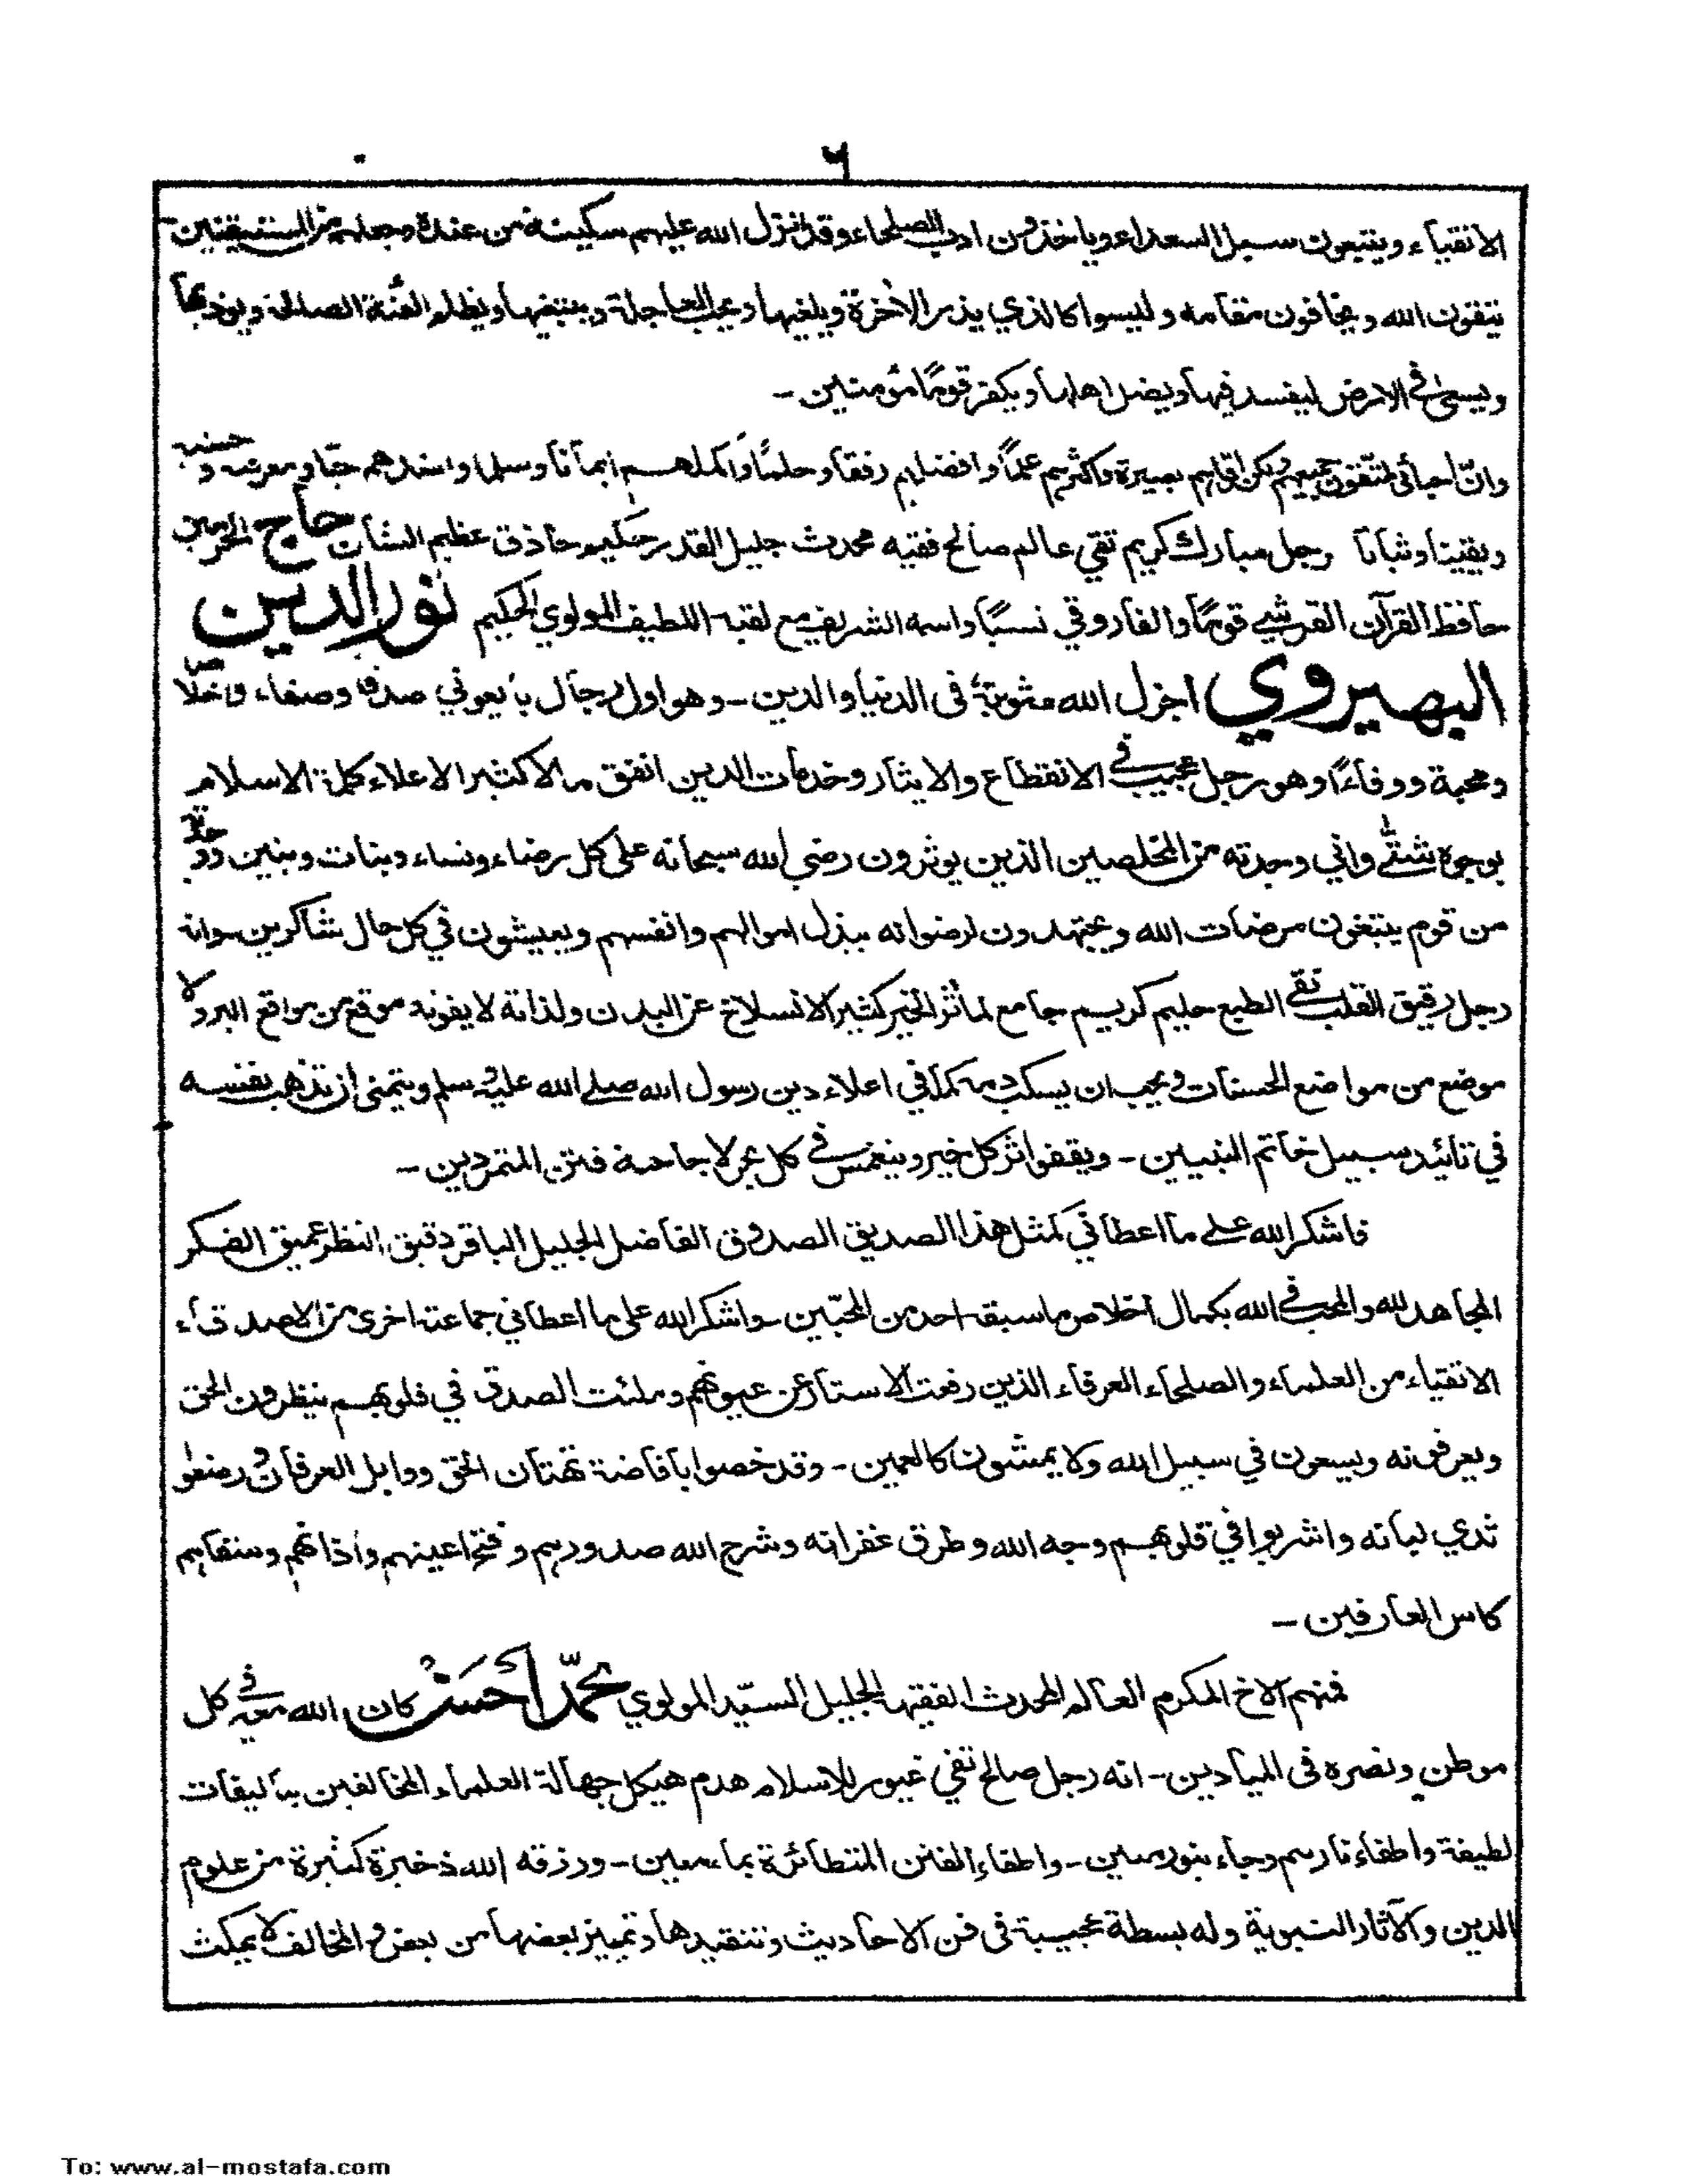 ٦
الاتقياء ويتبعون سبيل السعداء ويأخذون ادب الصلحاء وقد انزل الله عليهم سكينة من عنده وجعلهم من المستيقنين
يتقون الله ويخافون مقامه وليسوا كالذي يذر الأخرة ويلغيها ويحب العاجلة ويبتغيها ويظلم الفئة الصالحة ويوذيها
ويسعى في الارض ليفسد فيها ويضل اهلها ويكفر قومًا مؤمنين -
وانّ احبائي لمتقون جميعهم ولكن اقواهم بصيرة واكثرهم علمًا وافضلهم رفقًا وحلمًا واكملهم ايمانا وسلما واشدهم حبّا ومعرفة وخشية
ويقينا وثباتا رجل مبارك كريم تقي عالم صالح فقيه محدث جليل القدر حكيم حاذق عظيم الشان حاج الحرمين
حافظ القرآن القرشي قومًا والفاروقي نسبًا واسمه الشريف مع لقبه اللطيف المولوي الحكيم نور الدين
البهيروي اجزل الله مثوبته في الدنيا والدين - وهو اول رجال بايعوني صدقا وصفاء واخلاصًا
ومحبة ووفاءًا وهو رجل عجيب في الانقطاع والايثار وخدمات الدين انفق مالا كثيرا لاعلاء كلمة الاسلام
بوجوه شتّٰى واني وجدته من المخلصين الذين يوثرون رضي الله سبحانه على كل رضاء ونساء وبنات وبنين
من قوم يبتغون مرضات الله ويجتهدون لرضوانه ببذل اموالهم وانفسهم ويعيشون في كل حال شاكرين - وانه
رجل رقيق القلب نقي الطبع حليم كريم جامع لمأثر الخير كثير الانسلاخ عن البدن ولذاته لا يفوته موقع من مواقع البر ولا
موضع من مواضع الحسنات ويحب ان يسكب دمه كماءٍ في اعلاء دين رسول الله صلى الله عليه وسلم ويتمنى ان تذهب نفسه
في تائيد سبيل خاتم النبيين - ويقفو اثر كل خير وينغمس في كل بحر لاجاحة فتن المتمردين -
فاشكر الله على ما اعطاني كمثل هذا الصديق الصدوق الفاضل الجليل الباقر دقيق النظر عميق الفكر
المجاهد لله والمحب في الله بكمال اخلاص ما سبقه احد من المحبّين - واشكر الله على ما اعطاني جماعة اخرى من الاصدقاء
الاتقياء من العلماء والصلحاء العرفاء الذين رفعت الاستار عن عيونهم وملئت الصدق في قلوبهم ينظرون الحق
ويعرفونه ويسعون في سبيل الله ولا يمشون كالعمين - وقد خصوا بافاضة تهتان الحق ووابل العرفان ورضعوا
ثدي لبانه واشربوا في قلوبهم وجه الله وطرق غفرانه وشرح الله صدورهم وفتح اعينهم وأذانهم وسقاهم
كاس العارفين -
فمنهم الاخ المكرم العالم المحدث الفقيه الجليل السيّد المولوي محمّد أحسن كان الله معه في كل
موطن ونصره في الميادين - انه رجل صالح تقي غيور للاسلام هدم هيكل جهالة العلماء المخالفين بتأليفات
لطيفة واطفاء نارهم وجاء بنور مبين - واطفاء الفتن المتطائرة بماء معين - ورزقه الله ذخيرة كثيرة من علوم
الدين والآثار النبوية وله بسطة عجيبة في فن الاحاديث وتنقيدها وتمييز بعضها من بعض والمخالف لا يمكث
To: www.al-mostafa.com